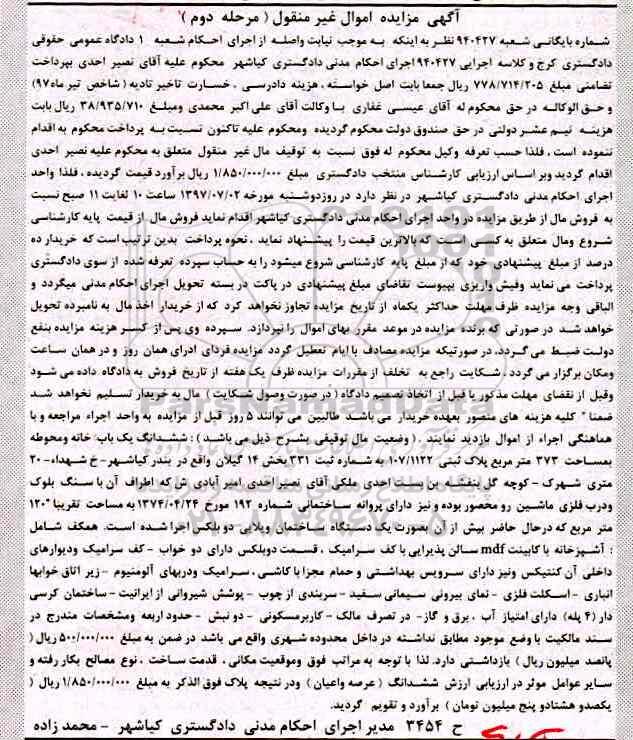 آگهی مزایده اموال غیر منقول ( مرحله دوم )
شماره بایگانی شعبه ۹۴۰۴۲۷ نظر به اینکه به موجب نیابت واصله از اجرای احکام شعبه ۱ دادگاه عمومی حقوقی
دادگستری کرج و کلاسه اجرایی ۹۴۰۴۲۷ اجرای احکام مدنی دادگستری کیاشهر محکوم علیه آقای نصیر احدی بپرداخت
تضامنی مبلغ ۷۷۸/۷۱۴/۲۰۵ ریال جمعا بابت اصل خواسته ، هزینه دادرسی ، خسارت تاخیر تادیه ( شاخص تیر ماه ۹۷)
و حق الوکاله در حق محکوم له آقای عیسی غفاری با وکالت آقای علی اکبر محمدی ومبلغ ۳۸/۹۳۵/۷۱۰ ریال بابت
هزینه نیم عشر دولتی در حق صندوق دولت محکوم گردیده ومحکوم علیه تاکنون نسبت به پرداخت محکوم به اقدام
ننموده است ، فلذا حسب تعرفه وکیل محکوم له فوق نسبت به توقیف مال غیر منقول متعلق به محکوم علیه نصیر احدی
اقدام گردید وبر اساس ارزیابی کارشناس منتخب دادگستری مبلغ ۱/۸۵۰/۰۰۰/۰۰۰ ریال برآورد قیمت گردیده ، فلذا واحد
اجرای احکام مدنی دادگستری کیاشهر در نظر دارد در روزدوشنبه مورخه ۱۳۹۷/۰۷/۰۲ ساعت ۱۰ لغایت ۱۱ صبح نسبت
به فروش مال از طریق مزایده در واحد اجرای احکام مدنی دادگستری کیاشهر اقدام نماید فروش مال از قیمت پایه کارشناسی
شروع ومال متعلق به کسی است که بالاترین قیمت را پیشنهاد نماید . نحوه پرداخت بدین ترتیب است که خریدار ده
درصد از مبلغ پیشنهادی خود که از مبلغ پایه کارشناسی شروع میشود را به حساب سپرده تعرفه شده از سوی دادگستری
پرداخت می نماید وفیش واریزی بپیوست تقاضای مبلغ پیشنهادی در پاکت در بسته تحویل اجرای احکام مدنی میگردد و
الباقی وجه مزایده ظرف مهلت حداکثر یکماه از تاریخ مزایده تجاوز نخواهد کرد که از خریدار اخذ مال به نامبرده تحویل
خواهد شد در صورتی که برنده مزایده در موعد مقرر بهای اموال را نپردازد. سپرده وی پس از کسر هزینه مزایده بنفع
دولت ضبط می گردد. در صورتیکه مزایده مصادف با ایام تعطیل گردد مزایده فردای اداری همان روز و در همان ساعت
ومکان برگزار می گردد ، شکایت راجع به تخلف از مقررات مزایده ظرف یک هفته از تاریخ فروش به دادگاه داده می شود
وقبل از نقضای مهلت مذکور یا قبل از اتخاذ تصمیم دادگاه ( در صورت وصول شکایت ) مال به خریدار تسلیم نخواهد شد
ضمنا " کلیه هزینه های متصور بعهده خریدار می باشد طالبین می توانند ۵ روز قبل از مزایده به واحد اجراء مراجعه و با
هماهنگی اجراء از اموال بازدید نمایند . ( وضعیت مال توقیفی بشرح ذیل می باشد ) : ششدانگ یک باب خانه ومحوطه
بمساحت ۳۷۳ متر مربع پلاک ثبتی ۱۰۷/۱۱۲۲ به شماره ثبت ۳۳۱ بخش ۱۴ گیلان واقع در بندر کیاشهر- خ شهداء- ۲۰
متری شهرک - کوچه گل بنفشه بن بست احدی ملکی آقای نصیر احدی امیر آبادی ش که اطراف آن با سنگ بلوک
ودرب فلزی ماشین رو محصور بوده و نیز دارای پروانه ساختمانی شماره ۱۹۲ مورخ ۱۳۷۴/۰۴/۲۴ به مساحت تقریبا "۱۲۰
متر مربع که درحال حاضر بیش از آن بصورت یک دستگاه ساختمان ویلایی دوبلکس اجرا شده است. همکف شامل
: آشپزخانه با کابینت mdf سالن پذیرایی با کف سرامیک ، قسمت دوبلکس دارای دو خواب - کف سرامیک ودیوارهای
داخلی آن کنتیکس ونیز دارای سرویس بهداشتی و حمام مجزا با کاشی ، سرامیک ودربهای آلومنیوم - زیر اتاق خوابها
انباری - اسکلت فلزی - نمای بیرونی سیمانی سفید - سربندی از چوب - پوشش شیروانی از ایرانیت - ساختمان کرسی
دار (۴ پله) دارای امتیاز آب ، برق و گاز- در تصرف مالک - کاربرمسکونی - دو نبش - حدود اربعه ومشخصات مندرج در
سند مالکیت با وضع موجود مطابق نداشته در داخل محدوده شهری واقع می باشد در ضمن به مبلغ ۵۰۰/۰۰۰/۰۰۰ ریال (
پانصد میلیون ریال ) بازداشتی دارد. لذا با توجه به مراتب فوق وموقعیت مکانی ، قدمت ساخت ، نوع مصالح بکار رفته و
سایر عوامل موثر در ارزیابی ارزش ششدانگ ( عرصه واعیان ) ودر نتیجه پلاک فوق الذکر به مبلغ ۱/۸۵۰/۰۰۰/۰۰۰ ریال (
یکصدو هشتادو پنج میلیون تومان ) برآورد و تقویم گردید.
ح ۳۴۵۴ مدیر اجرای احکام مدنی دادگستری کیاشهر - محمد زاده